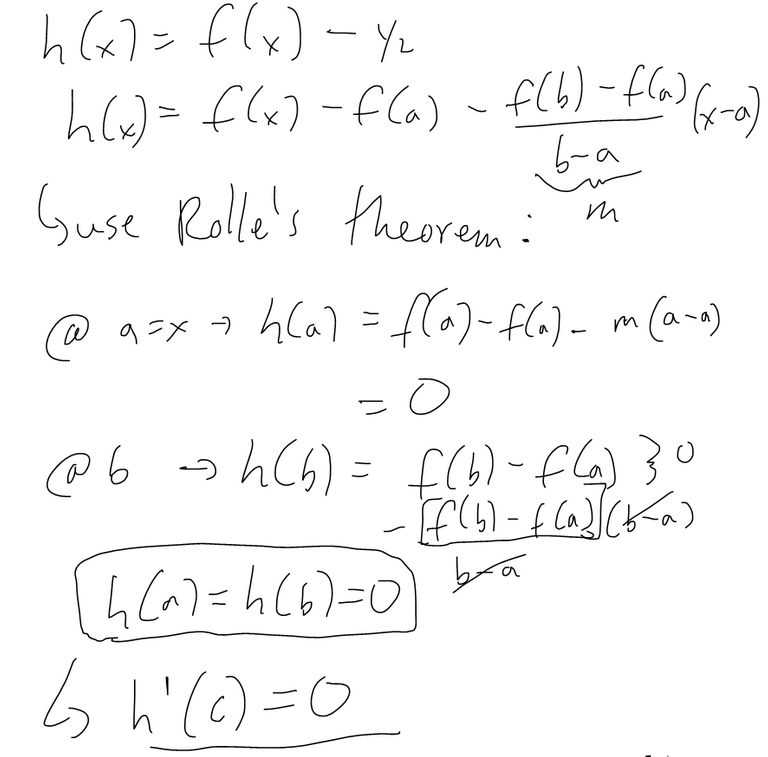 h(x) = f(x) - y₂
h(x) = f(x) - f(a) - \frac{f(b) - f(a)}{b-a} (x-a)
m
↳ use Rolle's theorem :
@ a=x → h(a) = f(a) - f(a) - m(a-a)
= 0
@ b → h(b) = f(b) - f(a) } 0
- [f(b) - f(a)] (b-a)
b-a
h(a) = h(b) = 0
↳ h'(c) = 0